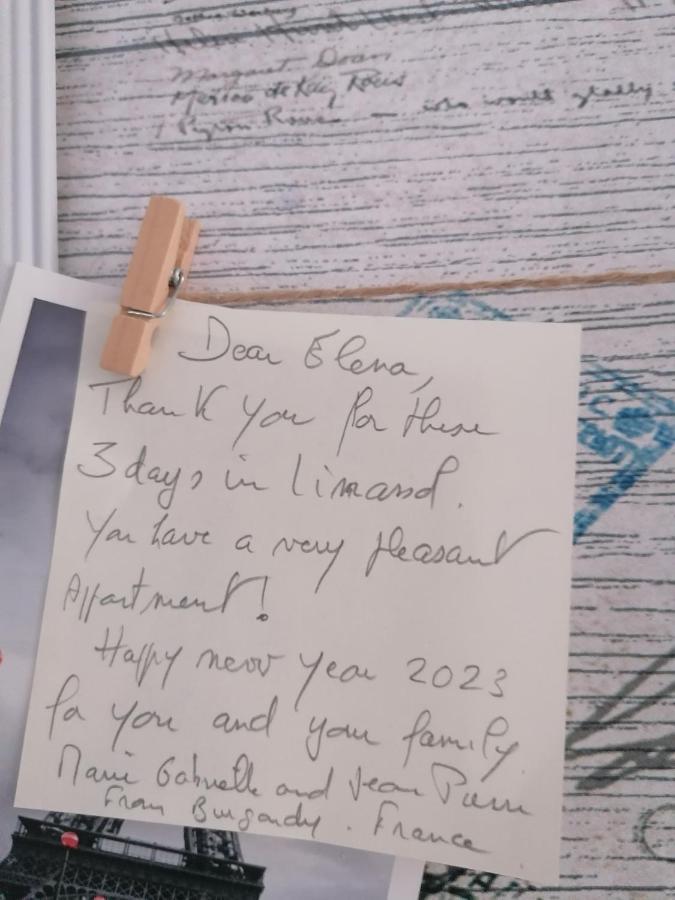 Margaret Doan
who would gladly
Dear Elena,
Thank you for these
3 days in limassol.
You have a very pleasant
Appartment!
Happy new year 2023
for you and your family
Marie Gabrielle and Jean Pierre
From Burgandy. France